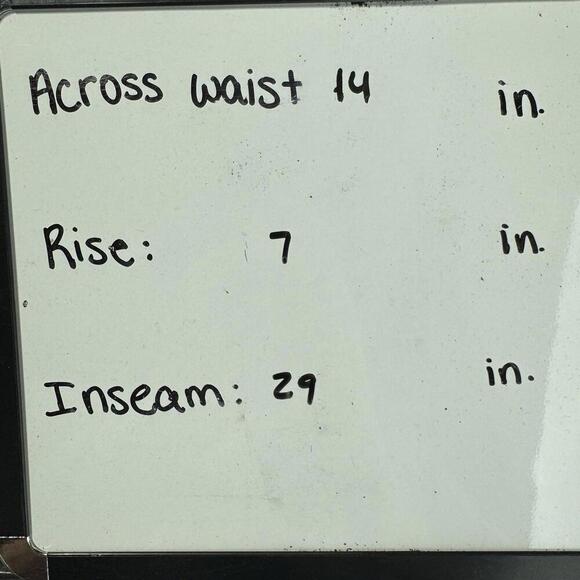 Across waist 14 in.
Rise: 7 in.
Inseam: 29 in.